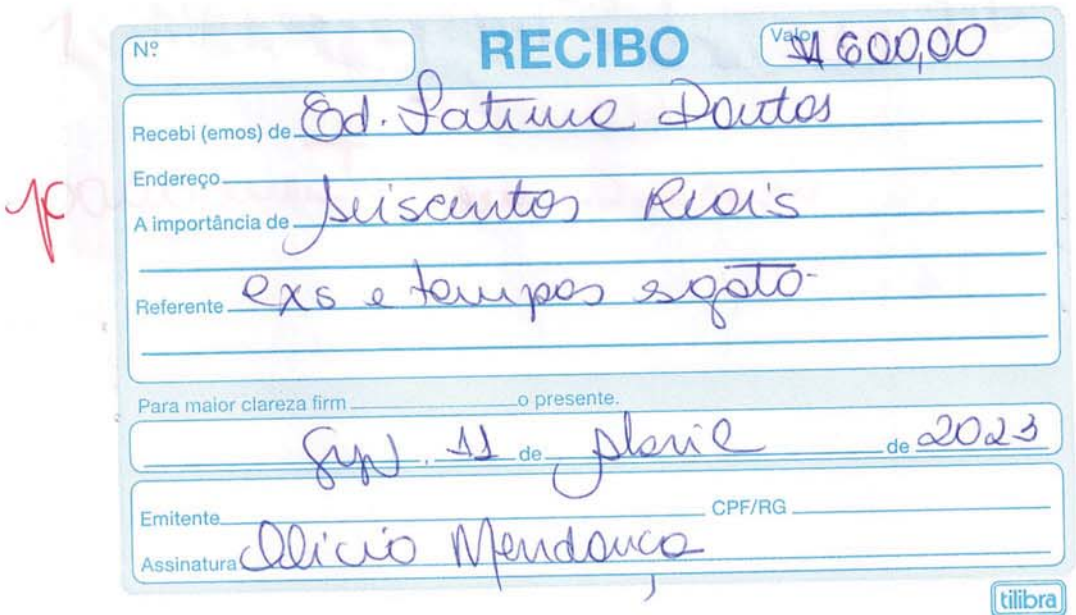 Nº RECIBO Valor $ 600,00
Recebi (emos) de Ed. Fatima Dantas
Endereço
A importância de seiscentos Reais
Referente exs e tampas esgoto
Para maior clareza firm o presente.
11 de Abril de 2023
Emitente CPF/RG
Assinatura Mendonça
tilibra